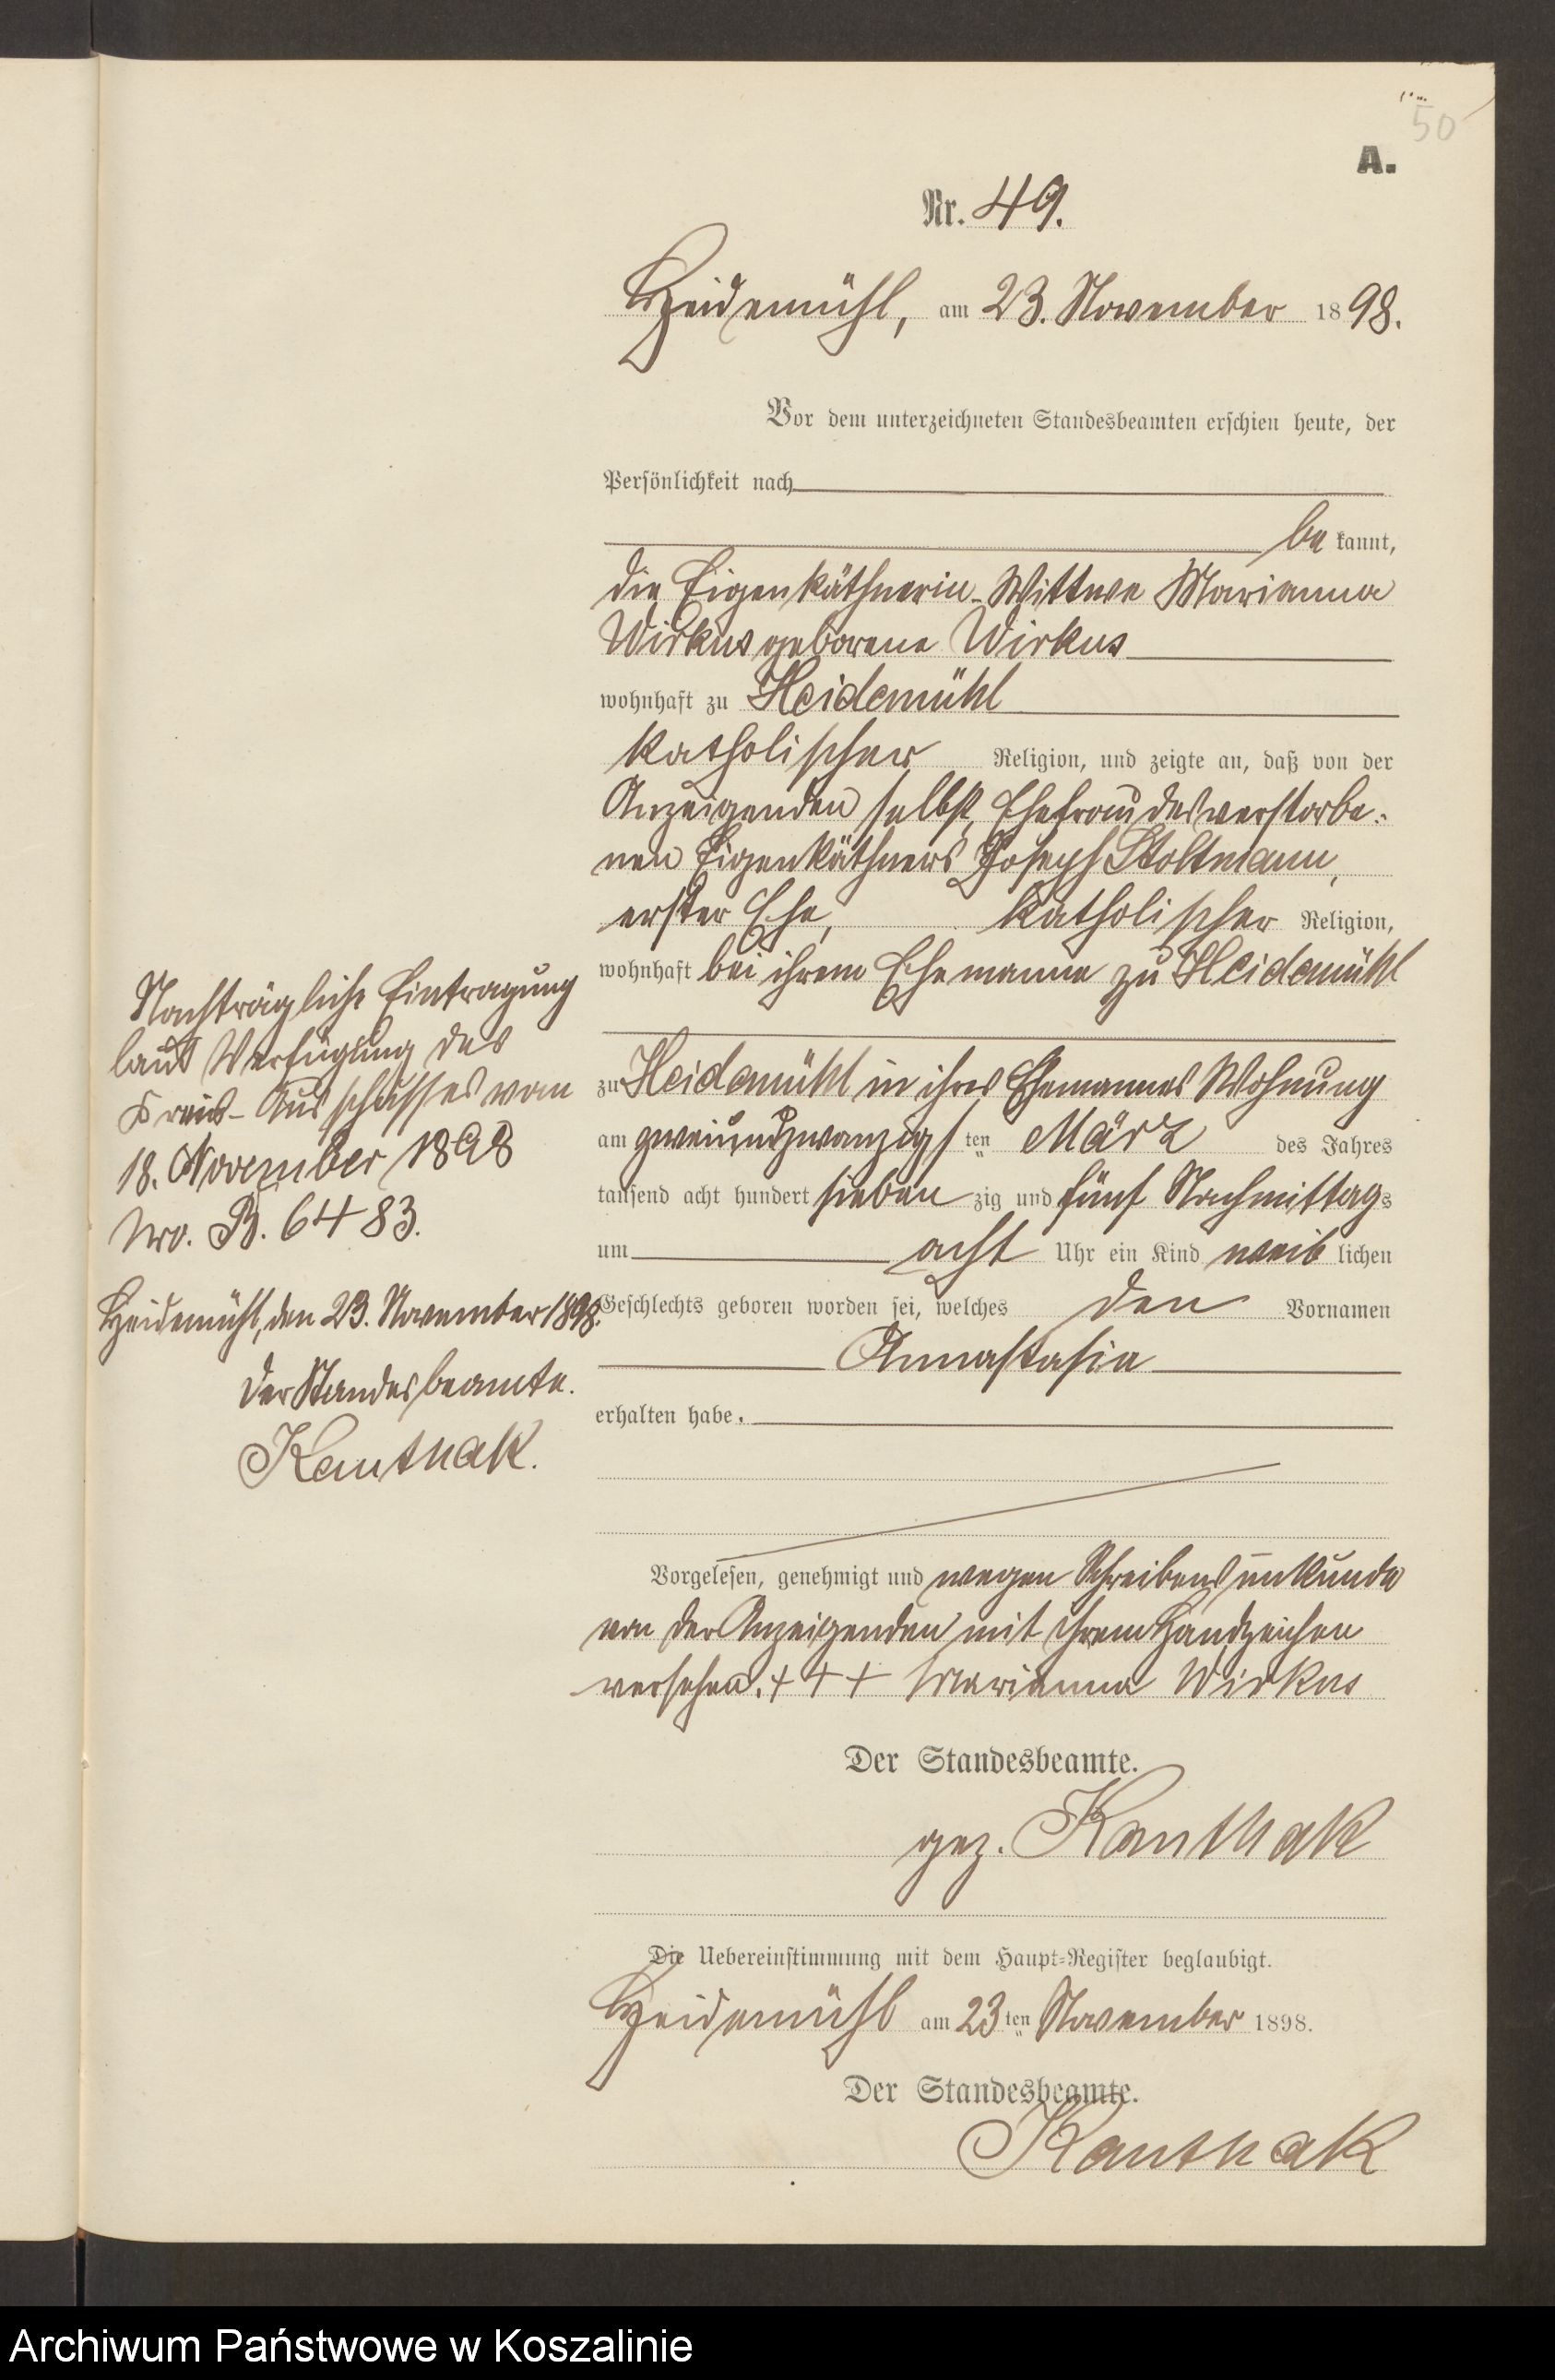 50
A.
Nr. 49.
Heidemühl, am 23. November 1898.
Vor dem unterzeichneten Standesbeamten erschien heute, der
Persönlichkeit nach
be kannt,
die Eigenkäthnerin-Wittwe Marianna
Wirkus geborene Wirkus
wohnhaft zu Heidemühl
katholischer Religion, und zeigte an, daß von der
Anzeigenden selbst, Ehefrau des verstorbe-
nen Eigenkäthners Joseph Stoltmann,
erster Ehe, katholischer Religion,
wohnhaft bei ihrem Ehemanne zu Heidemühl
zu Heidemühl in ihres Ehemannes Wohnung
am zweiundzwanzigsten März des Jahres
tausend acht hundert sieben zig und fünf Nachmittags
um acht Uhr ein Kind weib lichen
Geschlechts geboren worden sei, welches den Vornamen
Annastasia
erhalten habe.
Vorgelesen, genehmigt und wegen Schreibensunkunde
von der Anzeigenden mit ihrem Handzeichen
versehen. + + + Marianna Wirkus
Der Standesbeamte.
gez. Kanthak
Die Uebereinstimmung mit dem Haupt-Register beglaubigt.
Heidemühl am 23ten November 1898.
Der Standesbeamte.
Kanthak
Nachträgliche Eintragung
laut Verfügung des
Kreis-Ausschusses vom
18. November 1898
Nro. B. 6483.
Heidemühl, den 23. November 1898.
Der Standesbeamte.
Kanthak.
Archiwum Państwowe w Koszalinie